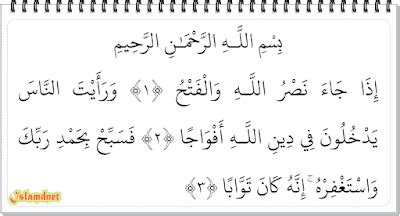 بِسْمِ اللَّـهِ الرَّحْمَـٰنِ الرَّحِيمِ
إِذَا جَاءَ نَصْرُ اللَّـهِ وَالْفَتْحُ ﴿١﴾ وَرَأَيْتَ النَّاسَ
يَدْخُلُونَ فِي دِينِ اللَّـهِ أَفْوَاجًا ﴿٢﴾ فَسَبِّحْ بِحَمْدِ رَبِّكَ
وَاسْتَغْفِرْهُ ۚ إِنَّهُ كَانَ تَوَّابًا ﴿٣﴾
Islamdnet